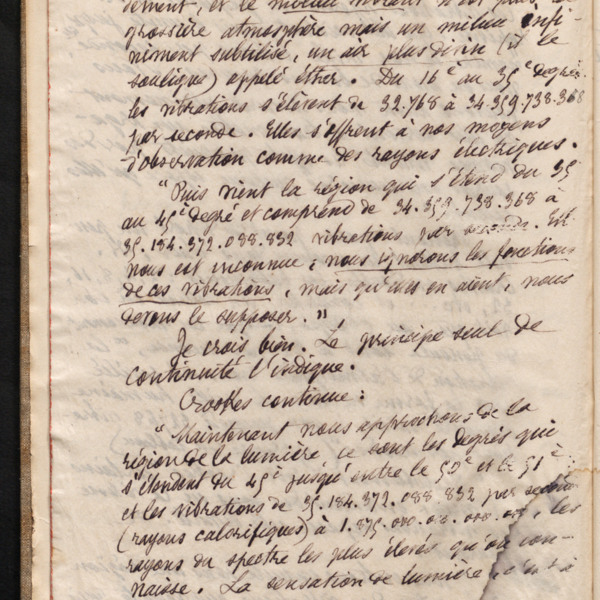 dément, et le milieu vibrant n'est plus
grossière atmosphère mais un milieu infi-
niment subtilisé, un air plus divin (il le
souligne) appelé éther. Du 16e au 35e degré
les vibrations s'élèvent de 32.768 à 34.359.738.368
par seconde. Elles s'offrent à nos moyens
d'observation comme des rayons électriques.
"Puis vient la région qui s'étend du 35
au 45e degré et comprend de 34.359.738.368 à
35.184.372.088.832 vibrations par seconde. Elle
nous est inconnue ; nous ignorons les fonctions
de ces vibrations, mais qu'elles en aient, nous
devons le supposer."
Je crois bien. Le principe seul de
continuité l'indique.
Crookes continue :
"Maintenant nous approchons de la
région de la lumière, ce sont les degrés qui
s'étendent du 45e jusqu'entre le 50e et le 51e
et les vibrations de 35.184.372.088.832 par seconde
(rayons calorifiques) à 1.875.000.000.000.000, les
rayons du spectre les plus élevés qu'on con-
naisse. La sensation de lumière, c'est à